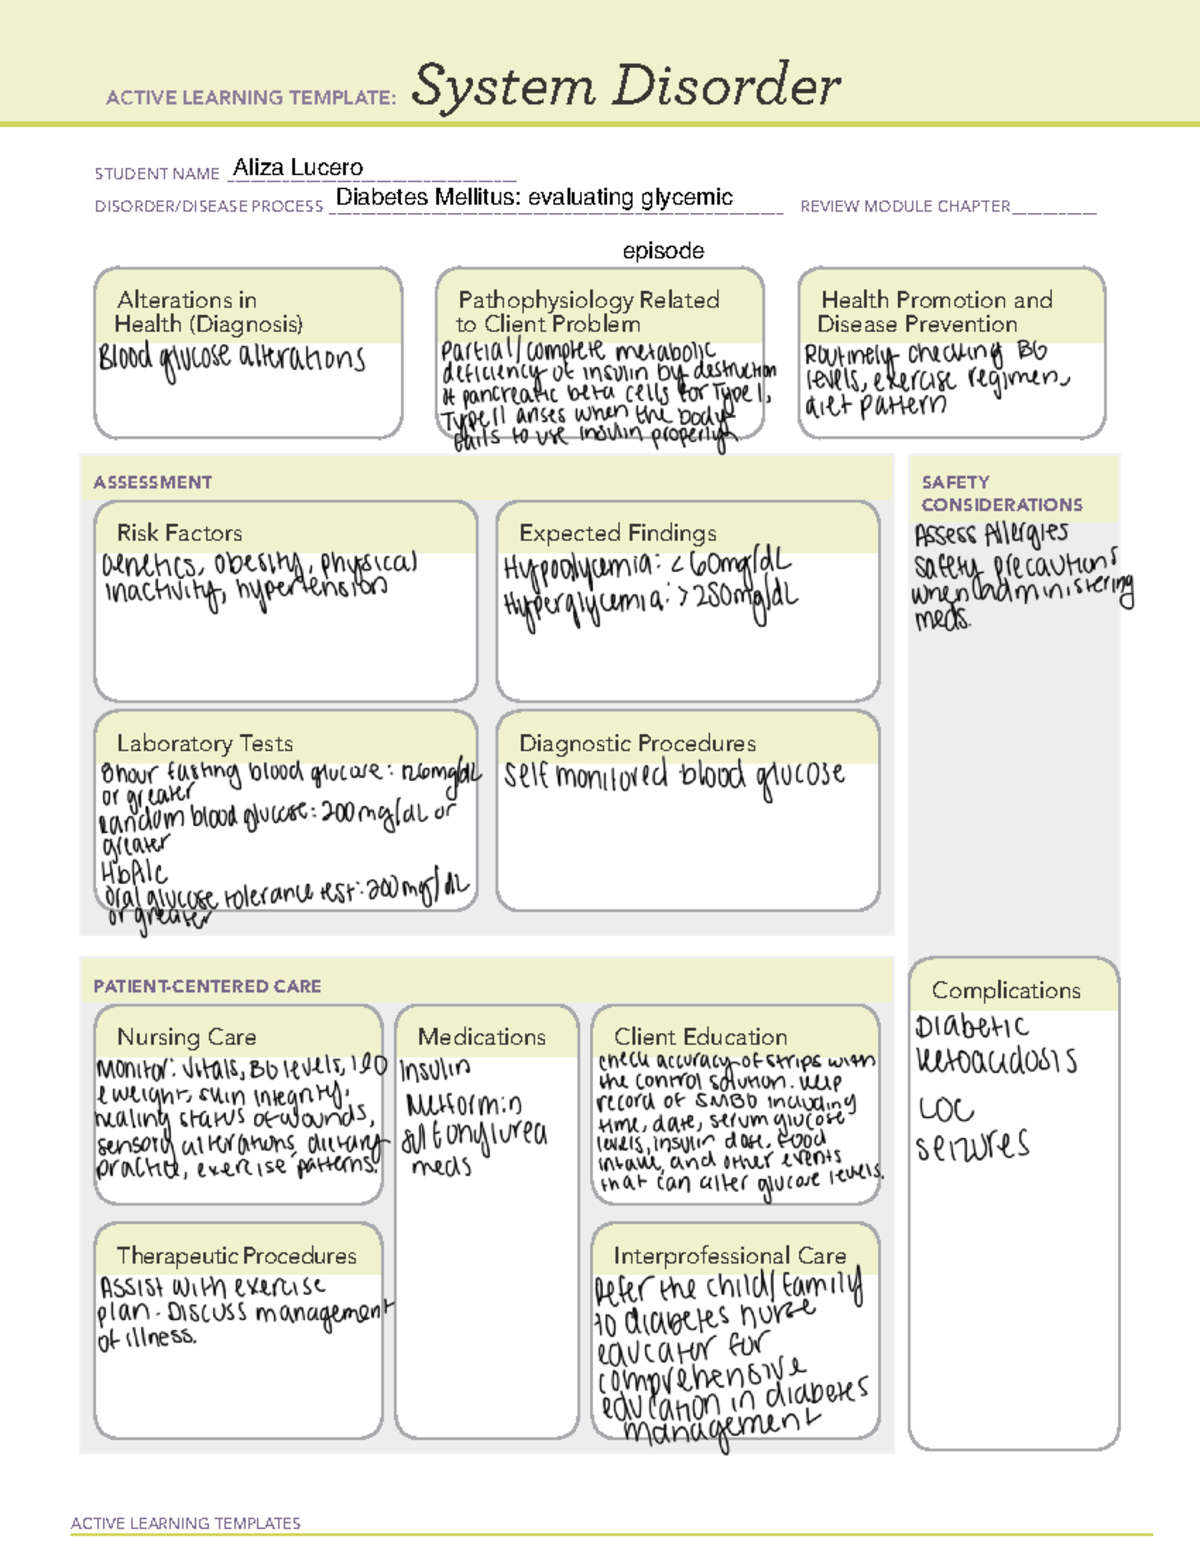 ACTIVE LEARNING TEMPLATE: System Disorder
STUDENT NAME Aliza Lucero
DISORDER/DISEASE PROCESS Diabetes Mellitus: evaluating glycemic
REVIEW MODULE CHAPTER
episode
Alterations in
Health (Diagnosis)
Blood glucose alterations
Pathophysiology Related
to Client Problem
Partial/complete metabolic
deficiency of insulin by destruction
of pancreatic beta cells for Type I,
Type II arises when the body
fails to use insulin properly
Health Promotion and
Disease Prevention
Routinely checking BG
levels, exercise regimen,
diet pattern
ASSESSMENT
Risk Factors
Genetics, obesity, physical
inactivity, hypertension
Expected Findings
Hypoglycemia: <60mg/dL
Hyperglycemia: >250mg/dL
Laboratory Tests
8hour fasting blood glucose: 126mg/dL
or greater
Random blood glucose: 200mg/dL or
greater
HbA1c
Oral glucose tolerance test: 200mg/dL
or greater
Diagnostic Procedures
Self monitored blood glucose
SAFETY
CONSIDERATIONS
Assess Allergies
Safety precautions
when administering
meds.
PATIENT-CENTERED CARE
Nursing Care
Monitor: Vitals, BG levels, I&O
& weight, skin integrity,
healing status of wounds,
sensory alterations, dietary
practice, exercise patterns.
Medications
Insulin
Metformin
sulfonylurea
meds
Client Education
Check accuracy of strips with
the control solution. Keep
record of SMBG including
time, date, serum glucose
levels, insulin dose, food
intake, and other events
that can alter glucose levels.
Therapeutic Procedures
Assist with exercise
plan. Discuss management
of illness.
Interprofessional Care
Refer the child/family
to diabetes nurse
educator for
comprehensive
education in diabetes
management
Complications
Diabetic
Ketoacidosis
LOC
seizures
ACTIVE LEARNING TEMPLATES